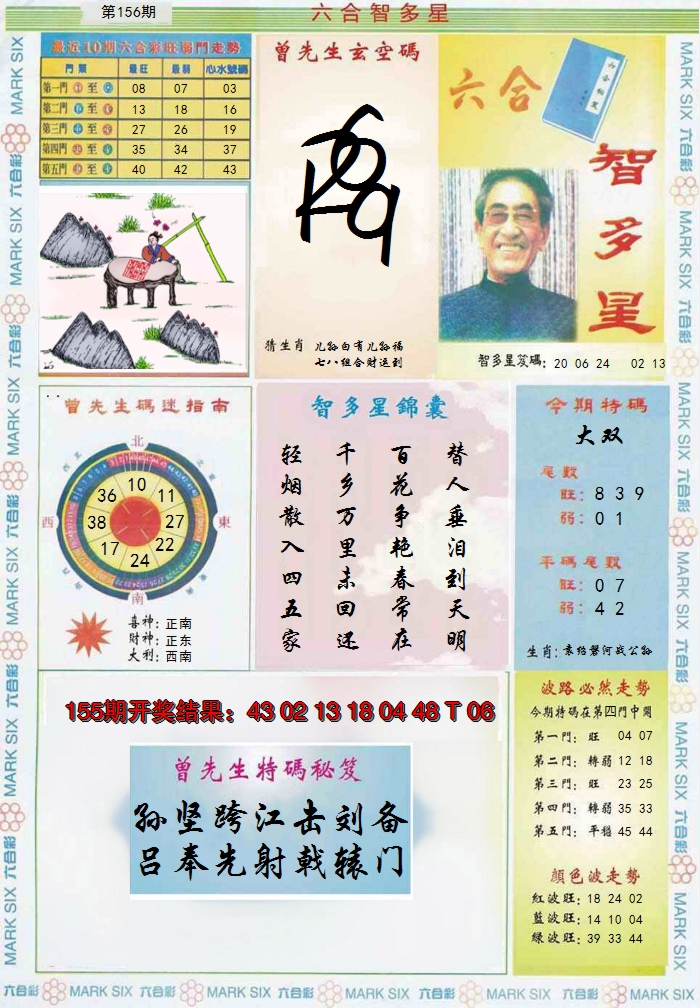 第156期
六合智多星
最近10期六合彩旺弱門走勢
門類 最旺 最弱 心水號碼
第一門 至 08 07 03
第二門 至 13 18 16
第三門 至 27 26 19
第四門 至 35 34 37
第五門 至 40 42 43
曾先生玄空碼
猜生肖 儿孙自有儿孙福
七八组合财运到
六合
智多星
智多星笈碼: 20 06 24 02 13
曾先生碼迷指南
北
西
東
南
36 10 11
38 27
17 24 22
喜神: 正南
財神: 正东
大利: 西南
智多星錦囊
替人垂泪到天明
百花争艳春常在
千乡万里未回还
轻烟散入四五家
今期特碼
大双
尾數
旺: 8 3 9
弱: 0 1
平碼尾數
旺: 0 7
弱: 4 2
生肖: 袁绍磐河战公孙
155期开奖结果: 43 02 13 18 04 48 T 06
曾先生特碼秘笈
孙坚跨江击刘备
吕奉先射戟辕门
波路必然走勢
今期特碼在第四門中開
第一門: 旺 04 07
第二門: 轉弱 12 18
第三門: 旺 23 25
第四門: 轉弱 35 33
第五門: 平穩 45 44
顏色波走勢
紅波旺: 18 24 02
藍波旺: 14 10 04
綠波旺: 39 33 44
六合彩 MARK SIX 六合彩 MARK SIX 六合彩 MARK SIX 六合彩 MARK SIX 六合彩